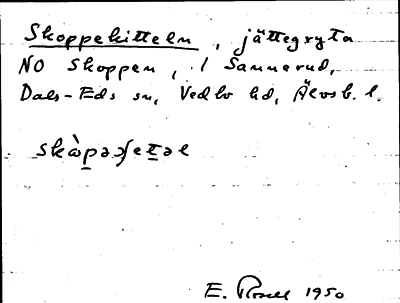 Skoppekitteln, jättegryta
NO Skoppen, i Sannerud,
Dals-Eds sn, Vedbo hd, Älvsb. l.
skὼpəʃetəl
E. Rosell 1950